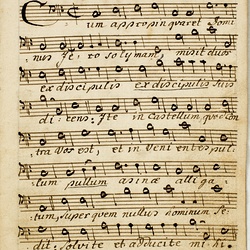 Cum appropinquaret Domi
nus Je,ro solymam misit duos
ex discipulis ex discipulis suis
di,cens: Ite in Castellum quod con
tra vos est, et in veni entes pul,
lum pullum asinæ alli ga,
tum, super quem nullus hominum se,
dit: Solvite et adducite mi hi